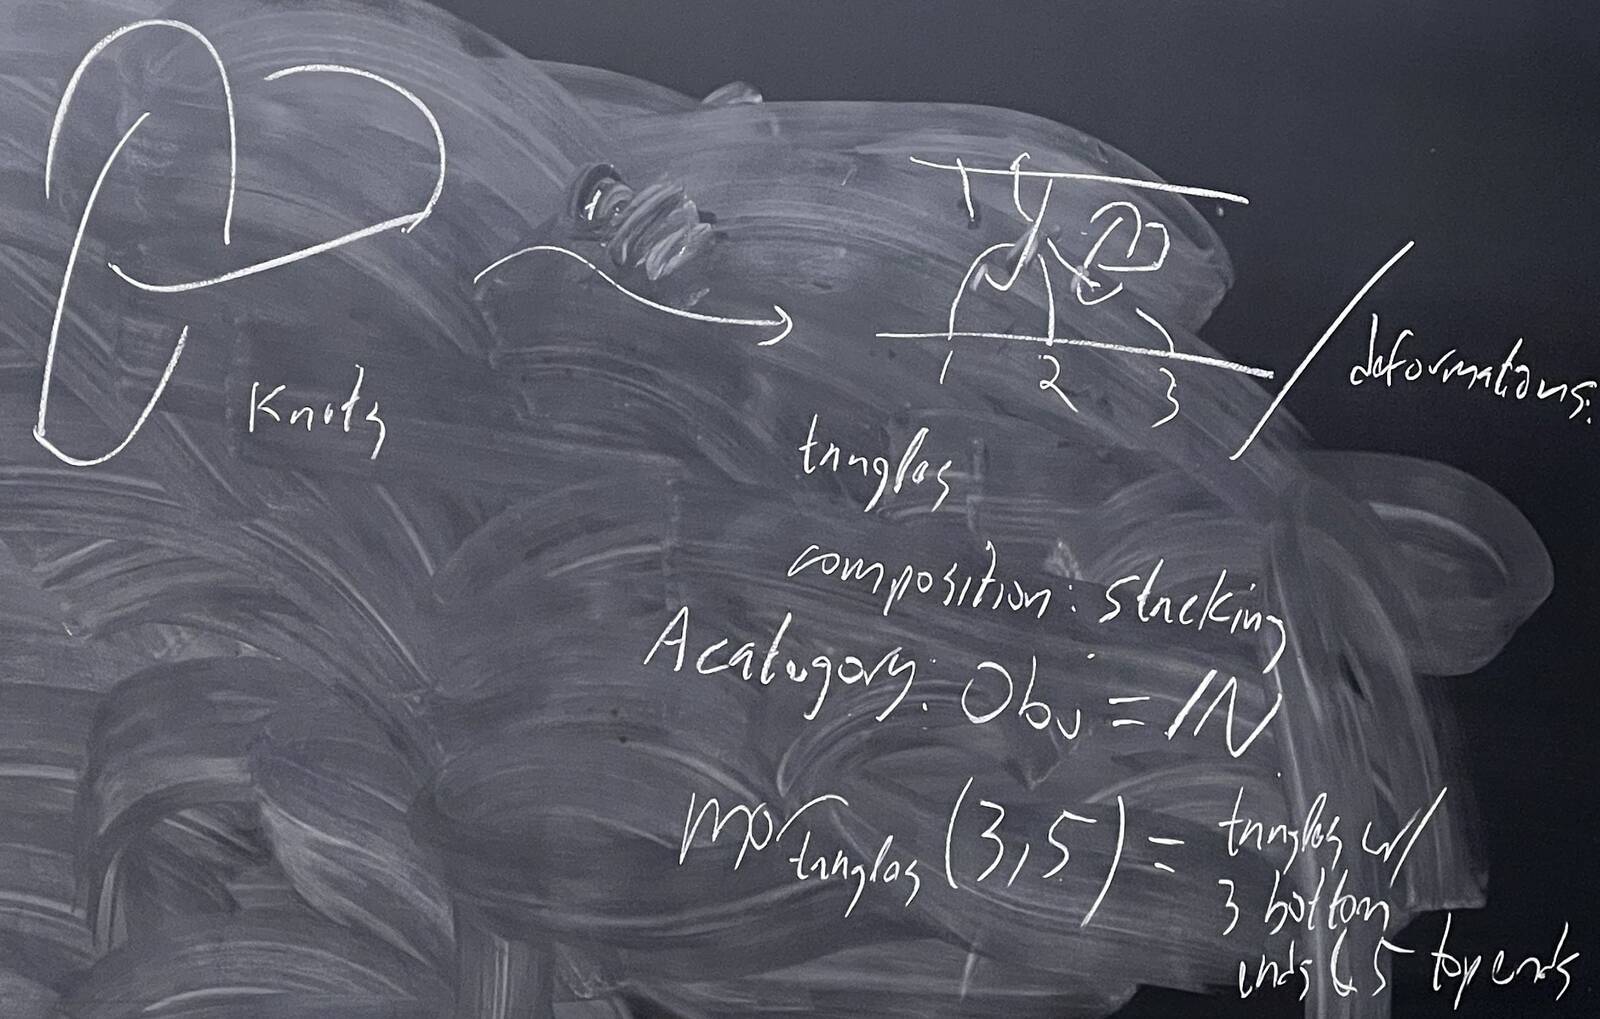 1 2 3
deformations.
Knots
tangles
composition: stacking
A category: Obj = ℕ
mor tangles (3,5) = tangles w/
3 bottom
ends & 5 top ends